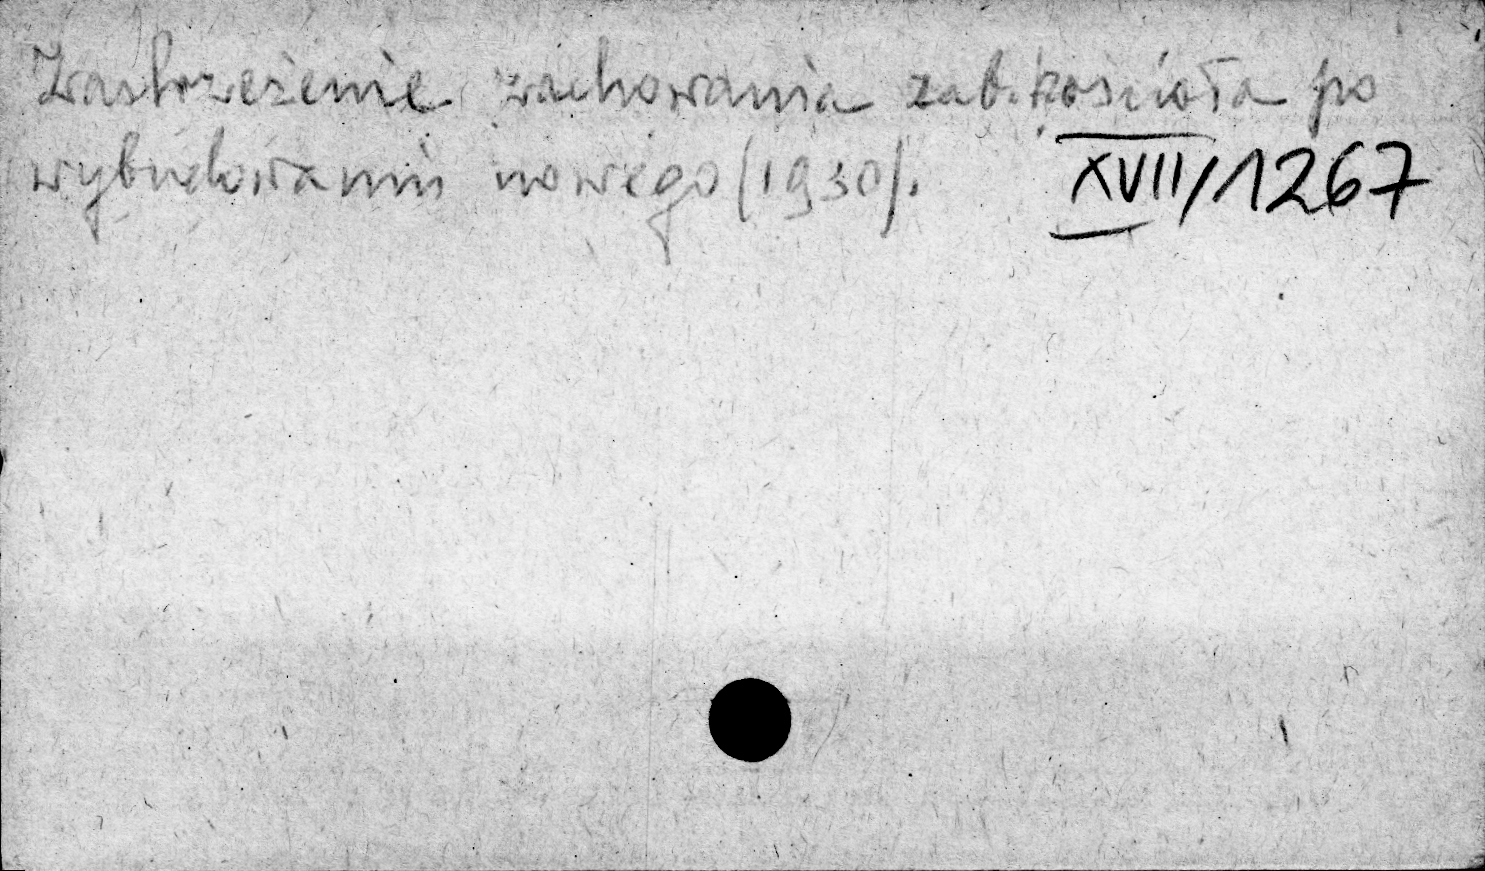 Zastrzeżenie zachowania zab. kościoła po
wybudowaniu nowego (1930). XVII/1267